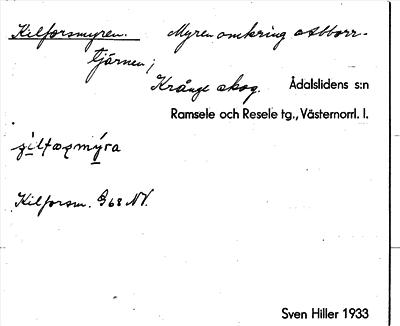 Kilforsmyren. Myren omkring Abborr-
tjärnen;
Krånge skog. Ådalslidens s:n
Ramsele och Resele tg., Västernorrl. l.
Kilforsm. G68 NV.
Sven Hiller 1933